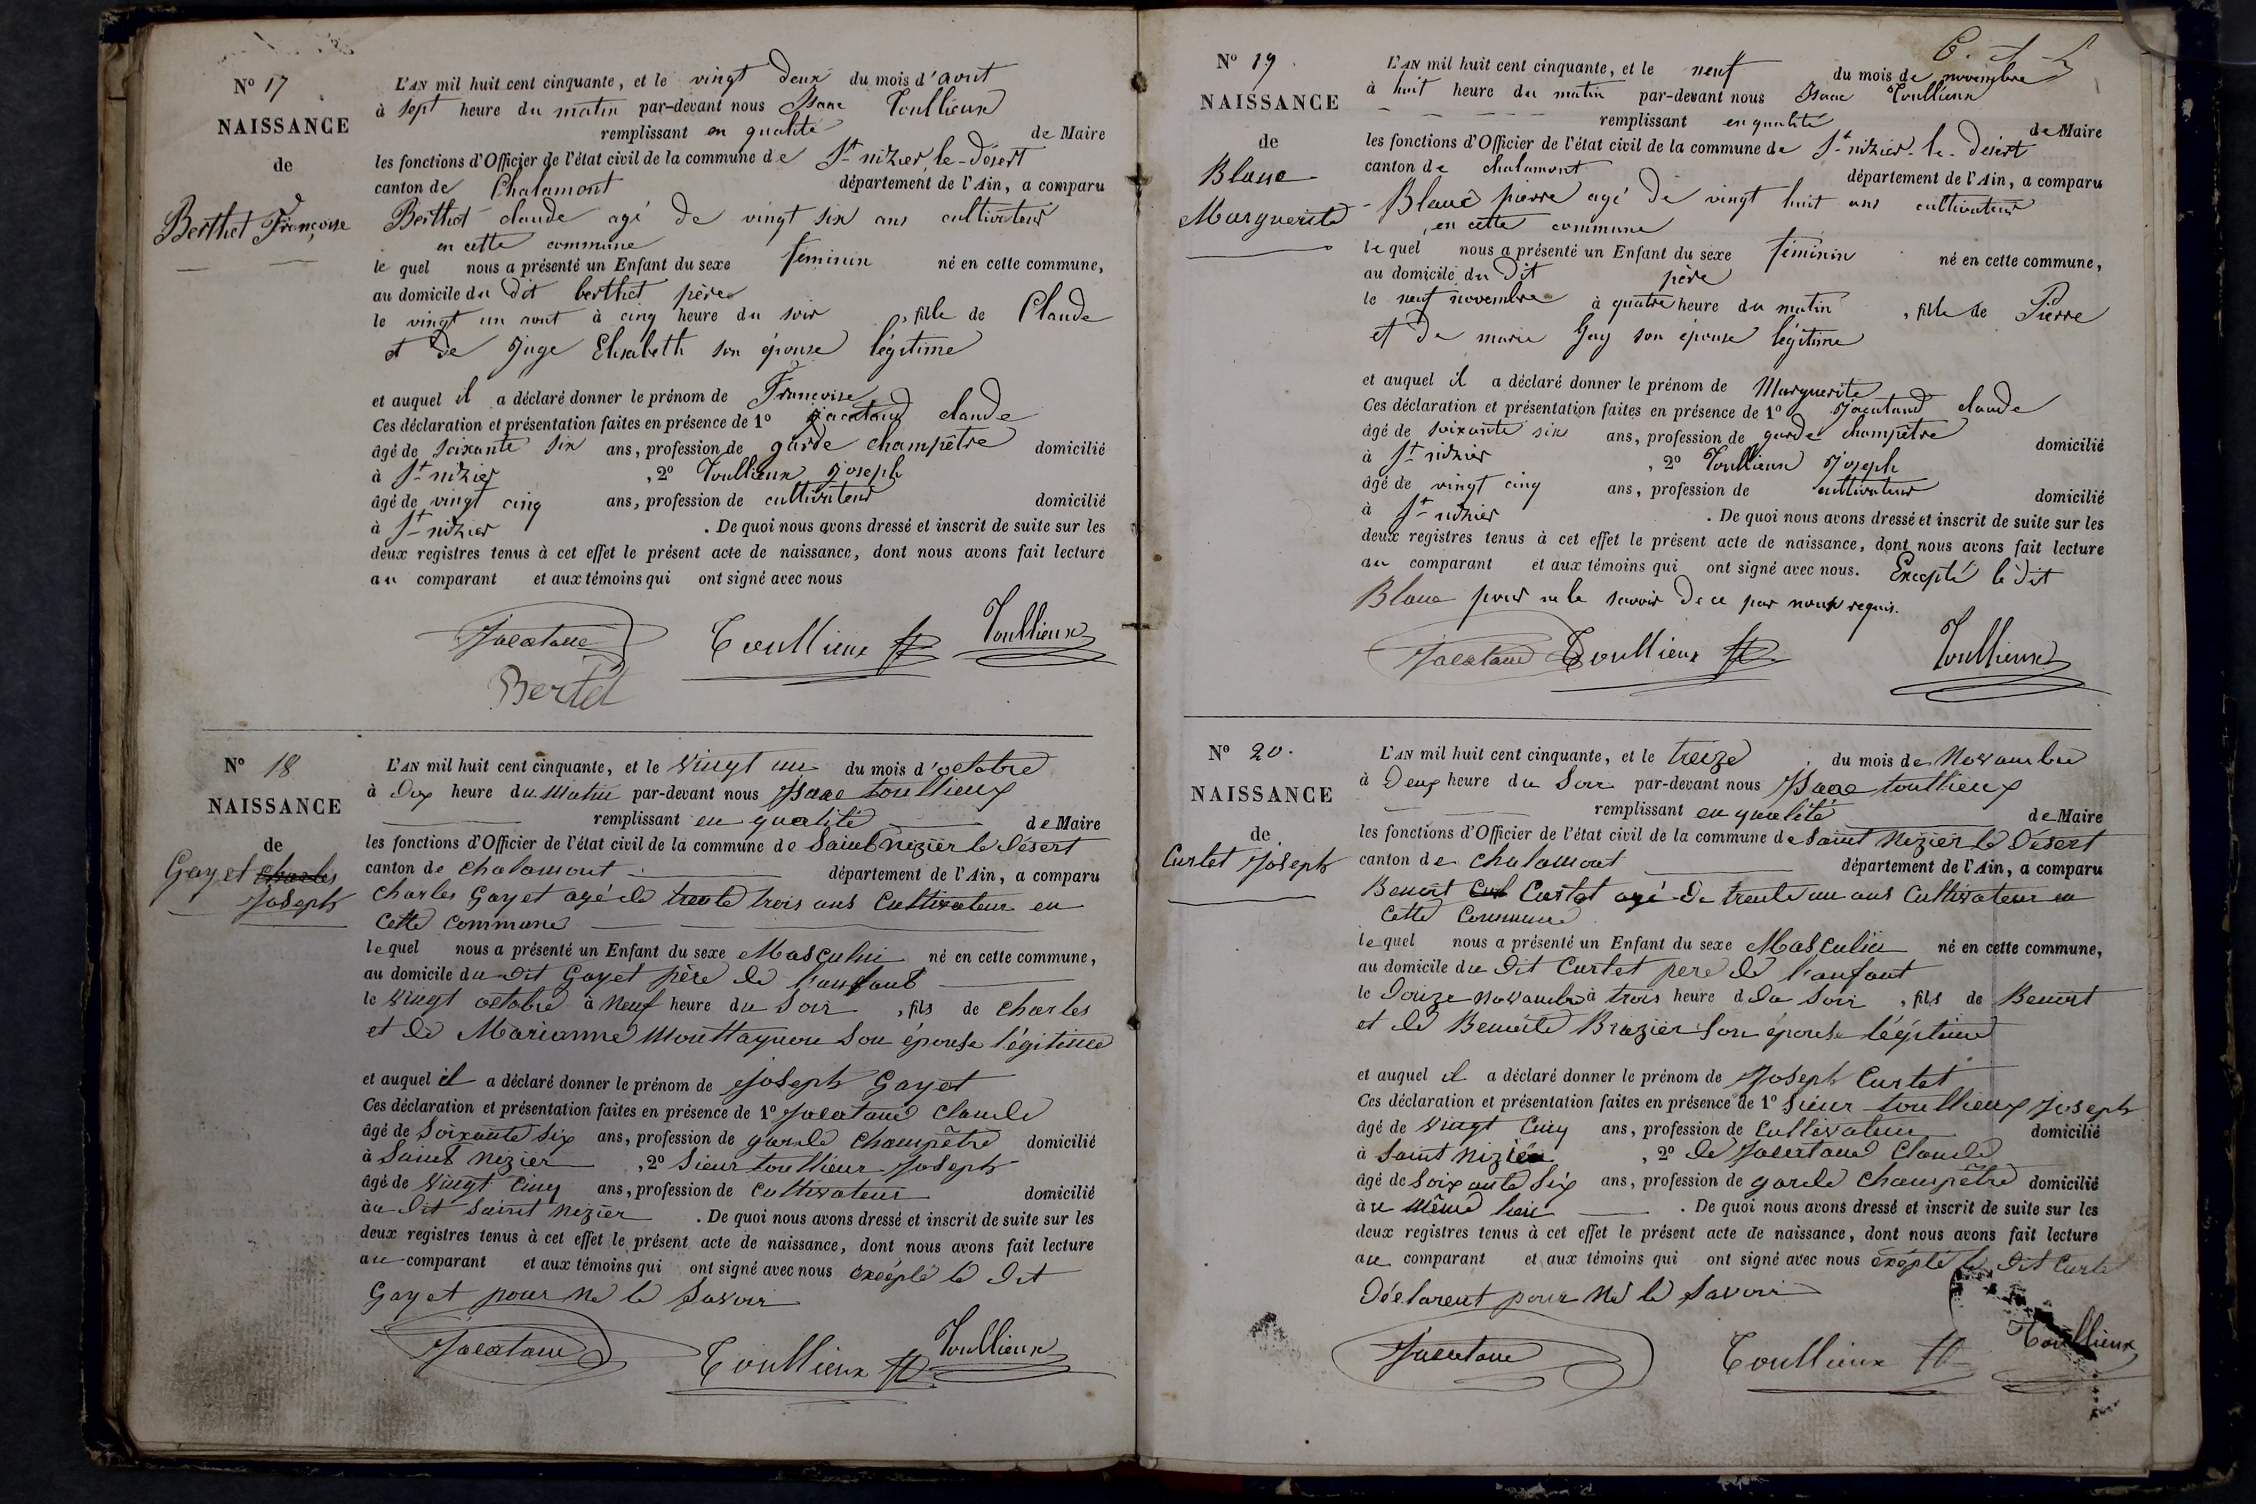 N° 17
NAISSANCE
de
Berthet Françoise
L'AN mil huit cent cinquante, et le vingt deux du mois d'aout
à sept heure du matin par-devant nous Isaac Toullieux
remplissant en qualité de Maire
les fonctions d'Officier de l'état civil de la commune de St nizier le-Désert
canton de Chalamont département de l'Ain, a comparu
Berthet claude agé de vingt six ans cultivateur
en cette commune
le quel nous a présenté un Enfant du sexe féminin né en cette commune,
au domicile du dit berthet père
le vingt un aout à cinq heure du soir , fille de Claude
et de Juge Elisabeth son épouse légitime
et auquel il a déclaré donner le prénom de Françoise
Ces déclaration et présentation faites en présence de 1° Jacatand claude
âgé de soixante six ans, profession de garde champêtre domicilié
à St nizier , 2° Toullieux joseph
âgé de vingt cinq ans, profession de cultivateur domicilié
à St nizier . De quoi nous avons dressé et inscrit de suite sur les
deux registres tenus à cet effet le présent acte de naissance, dont nous avons fait lecture
au comparant et aux témoins qui ont signé avec nous
Jacatand Toullieux Toullieux
Bertet
N° 18
NAISSANCE
de
Gayet Charles
Joseph
L'AN mil huit cent cinquante, et le vingt un du mois d'octobre
à Dix heure du matin par-devant nous Isaac toullieux
remplissant en qualité de Maire
les fonctions d'Officier de l'état civil de la commune de Saint nizier le Désert
canton de Chalamont département de l'Ain, a comparu
Charles Gayet agé de trente trois ans Cultivateur en
Cette Commune
le quel nous a présenté un Enfant du sexe Masculin né en cette commune,
au domicile du dit Gayet père de l'anfant
le vingt octobre à neuf heure du soir , fils de Charles
et de Marianne Mouttagnon son épouse légitime
et auquel il a déclaré donner le prénom de Joseph Gayet
Ces déclaration et présentation faites en présence de 1° Jacatand Claude
âgé de Soixante Six ans, profession de garde Champêtre domicilié
à Saint nizier , 2° Sieur toullieux Joseph
âgé de vingt Cinq ans, profession de Cultivateur domicilié
au Dit Saint nizier . De quoi nous avons dressé et inscrit de suite sur les
deux registres tenus à cet effet le présent acte de naissance, dont nous avons fait lecture
au comparant et aux témoins qui ont signé avec nous exéépté le Dit
Gayet pour ne le Savoir
Jacatand Toullieux Toullieux
N° 19
NAISSANCE
de
Blanc
Marguerite
L'AN mil huit cent cinquante, et le neuf du mois de novembre
à huit heure du matin par-devant nous Isaac Toullieux
remplissant en qualité de Maire
les fonctions d'Officier de l'état civil de la commune de St-nizier-le-désert
canton de chalamont département de l'Ain, a comparu
Blanc pierre agé de vingt huit ans cultivateur
en cette commune
le quel nous a présenté un Enfant du sexe féminin né en cette commune,
au domicile du Dit père
le neuf novembre à quatre heure du matin , fille de Pierre
et de marie Gay son épouse légitime
et auquel il a déclaré donner le prénom de Marguerite
Ces déclaration et présentation faites en présence de 1° Jacatand claude
âgé de soixante six ans, profession de garde champêtre domicilié
à St nizier , 2° Toullieux Joseph
âgé de vingt cinq ans, profession de cultivateur domicilié
à St nizier . De quoi nous avons dressé et inscrit de suite sur les
deux registres tenus à cet effet le présent acte de naissance, dont nous avons fait lecture
au comparant et aux témoins qui ont signé avec nous. Excepté le dit
Blanc pour ne le savoir de ce par nous requis.
Jacatand Toullieux Toullieux
N° 20.
NAISSANCE
de
Curtet Joseph
L'AN mil huit cent cinquante, et le treize du mois de Novambre
à Deux heure du Soir par-devant nous Isaac toullieux
remplissant en qualité de Maire
les fonctions d'Officier de l'état civil de la commune de Saint Nizier le Désert
canton de Chalamont département de l'Ain, a comparu
Benoit Curtet agé de trente un ans Cultivateur en
Cette Commune
le quel nous a présenté un Enfant du sexe Masculin né en cette commune,
au domicile du Dit Curtet pere de l'anfant
le Douze Novambre à trois heure d du Soir , fils de Benoit
et de Benoite Brazier son épouse légitime
et auquel il a déclaré donner le prénom de Joseph Curtet
Ces déclaration et présentation faites en présence de 1° Sieur toullieux Joseph
âgé de vingt Cinq ans, profession de Cultivateur domicilié
à Saint Nizier , 2° de Jacatand Claude
âgé de Soixante Six ans, profession de garde Champêtre domicilié
au même lieu . De quoi nous avons dressé et inscrit de suite sur les
deux registres tenus à cet effet le présent acte de naissance, dont nous avons fait lecture
au comparant et aux témoins qui ont signé avec nous exépté le Dit Curtet
Déclarent pour ne le Savoir
Jacatand Toullieux Toullieux